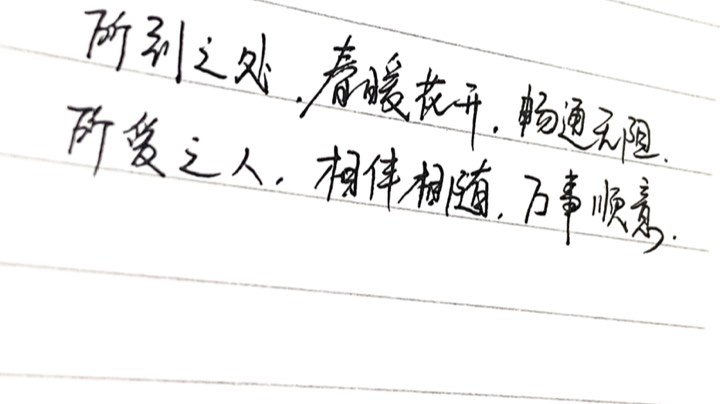 所到之处,春暖花开,畅通无阻.
所爱之人,相伴相随,万事顺意.